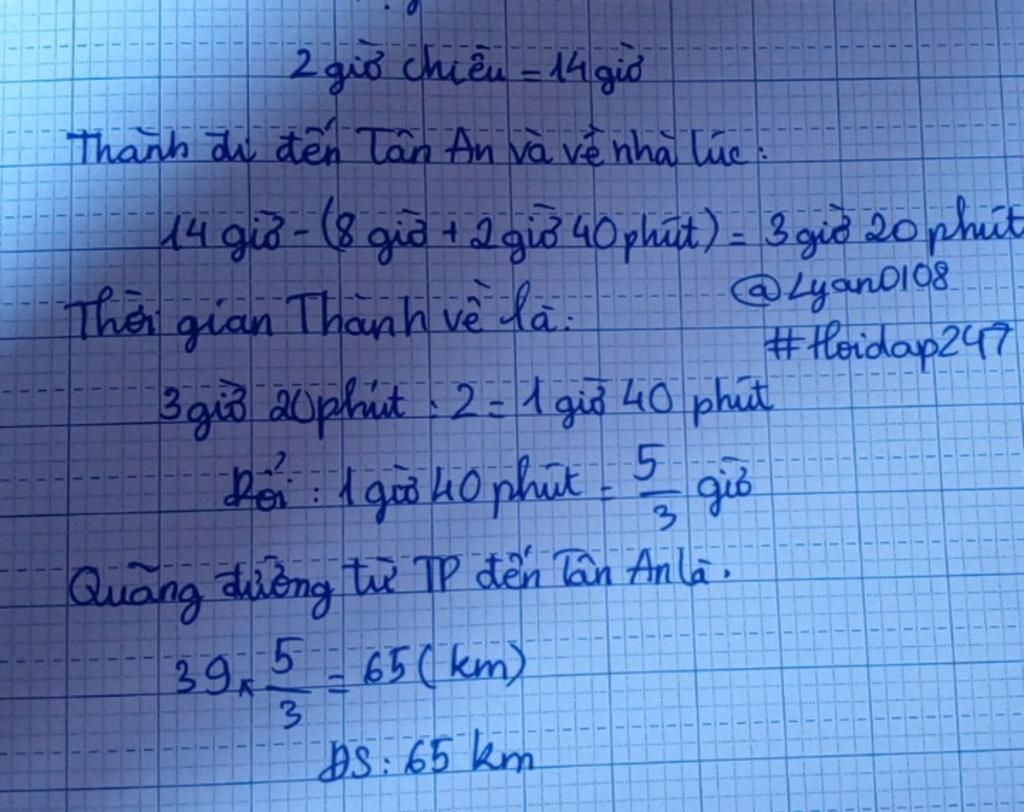 2 giờ chiều = 14 giờ
Thành đi đến Tân An và về nhà lúc:
14 giờ - (8 giờ + 2 giờ 40 phút) = 3 giờ 20 phút
@Lyan0108
Thời gian Thành về là:
#Hoidap247
3 giờ 20 phút : 2 = 1 giờ 40 phút
Đổi : 1 giờ 40 phút = 5/3 giờ
Quãng đường từ TP đến Tân An là.
39 x 5/3 = 65 (km)
ĐS: 65 km